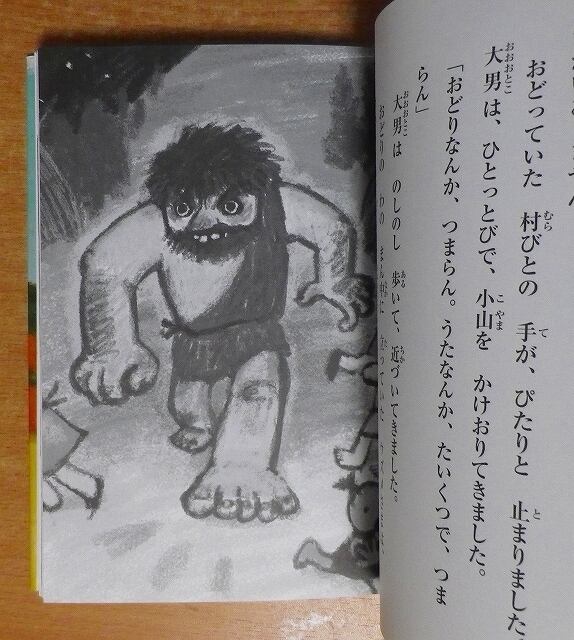 おどっていた 村びとの 手が、ぴたりと 止まりました
大男は、ひとっとびで、小山を かけおりてきました。
「おどりなんか、つまらん。うたなんか、たいくつで、つま
らん」
大男は のしのし 歩いて、近づいてきました。
おどりの わの まん中に 立っていた